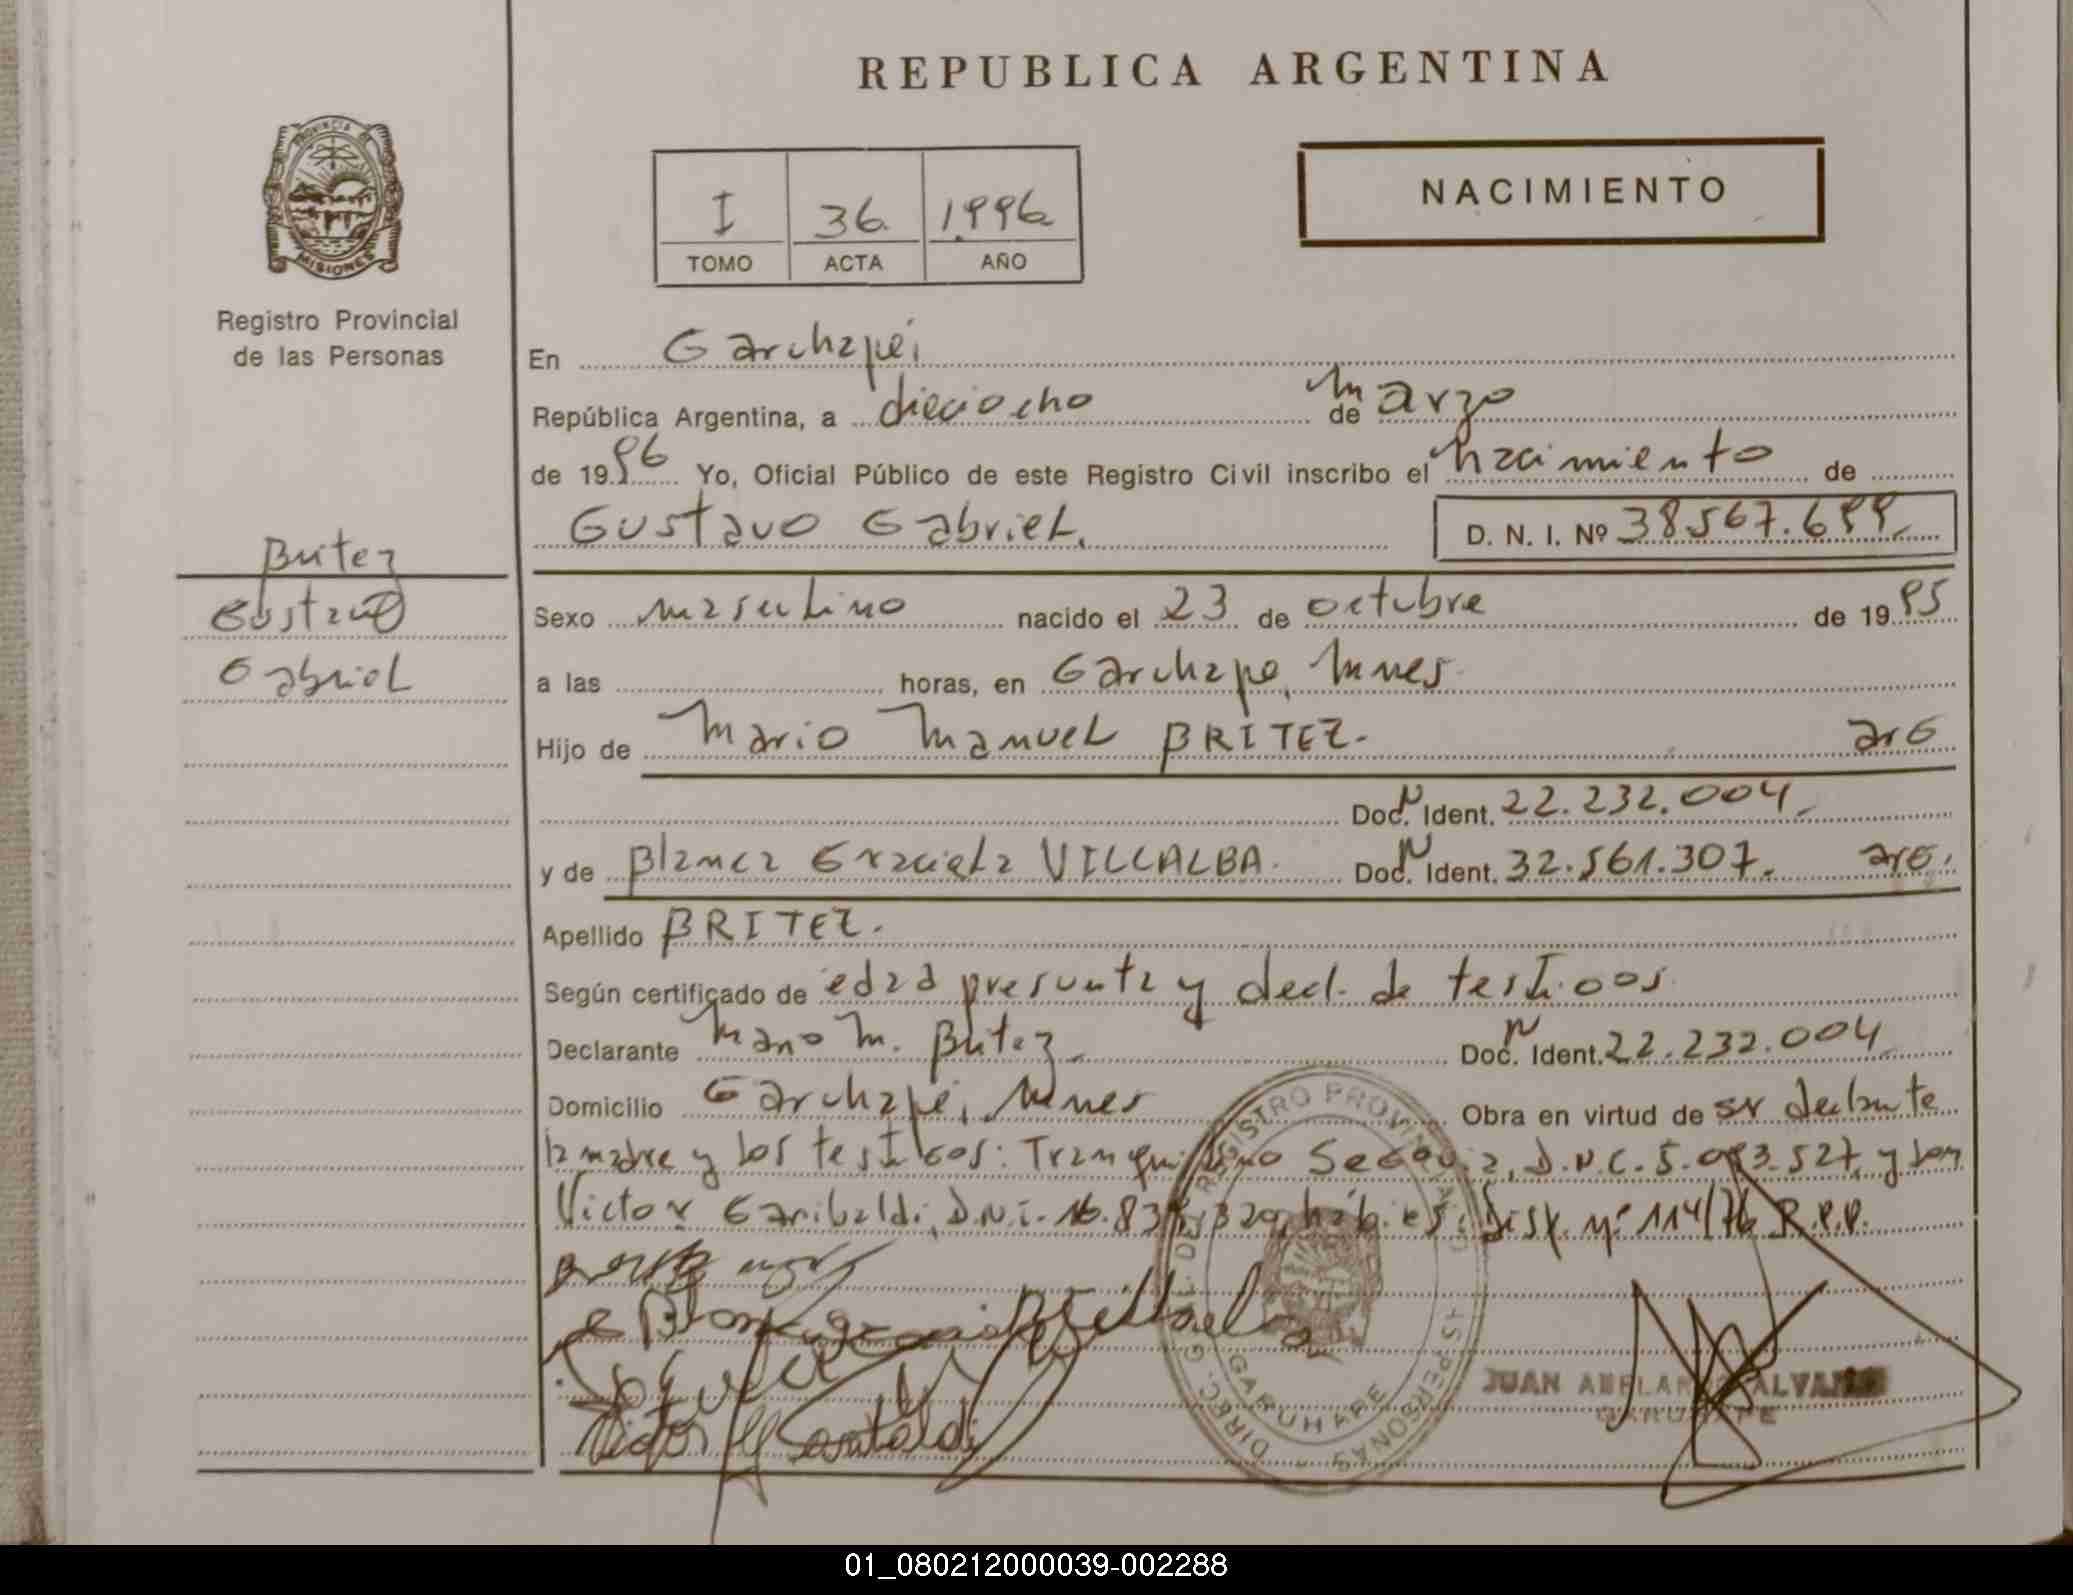 REPUBLICA ARGENTINA
PROVINCIA DE
MISIONES
Registro Provincial
de las Personas
I 36 1996
TOMO ACTA AÑO
NACIMIENTO
En Garuhapé,
República Argentina, a dieciocho de Marzo
de 1996 Yo, Oficial Público de este Registro Civil inscribo el nacimiento de
Gustavo Gabriel. D. N. I. Nº 38.567.699.
Britez
Gustavo
Gabriel
Sexo masculino nacido el 23 de octubre de 1995
a las horas, en Garuhape, Mnes.
Hijo de Mario Manuel BRITEZ. arg
Doc. Ident. 22.232.004.
y de Blanca Graciela VILLALBA. Doc. Ident. 32.561.307. arg.
Apellido BRITEZ.
Según certificado de edad presunta y decl. de testigos
Declarante Mario M. Britez. Doc. Ident. 22.232.004
Domicilio Garuhapé, Mnes Obra en virtud de ser declante
la madre y los testigos: Tranquilino Segovia, D.N.I. 5.093.527, y don
Victor Garibaldi, D.N.I. 16.83 320, háb. es. Disp. nº 114/76 R.P.P.
DIREC. GRAL. DEL REGISTRO PROVINCIAL DE LAS PERSONAS
GARUHAPE
JUAN ABELARDO ALVAREZ
GARUHAPE
01_080212000039-002288